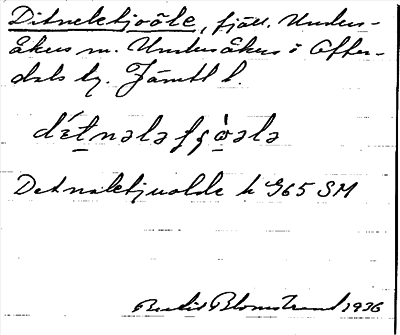 Ditneltjvåle, fjäll. Unders-
åkers sn. Undersåkers o Offer-
dals tg. Jämtl l.
détnələfȿòələ
Detneltjuolde k G65 SM
Bertil Blomstrand 1936